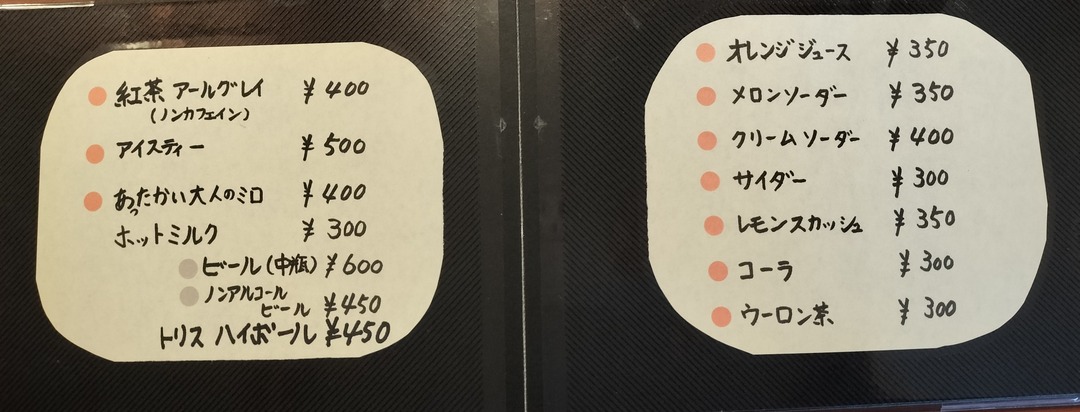 紅茶 アールグレイ ¥400
(ノンカフェイン)
アイスティー ¥500
あったかい大人のミロ ¥400
ホットミルク ¥300
ビール(中瓶) ¥600
ノンアルコール
ビール ¥450
トリス ハイボール ¥450
オレンジジュース ¥350
メロンソーダー ¥350
クリームソーダー ¥400
サイダー ¥300
レモンスカッシュ ¥350
コーラ ¥300
ウーロン茶 ¥300